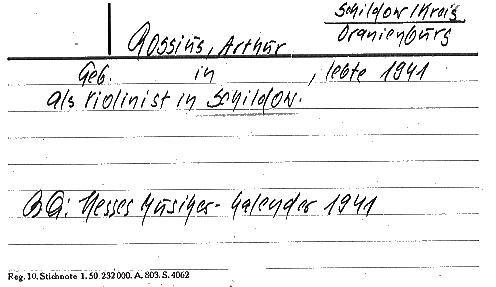 Schildow/Kreis
Oranienburg
Rossius, Arthur
Geb. in , lebte 1941
als Violinist in Schildow.
BQ: Hesses Musiker-Kalender 1941
Reg. 10. Stichnote 1. 50. 232000. A. 803. S. 4062